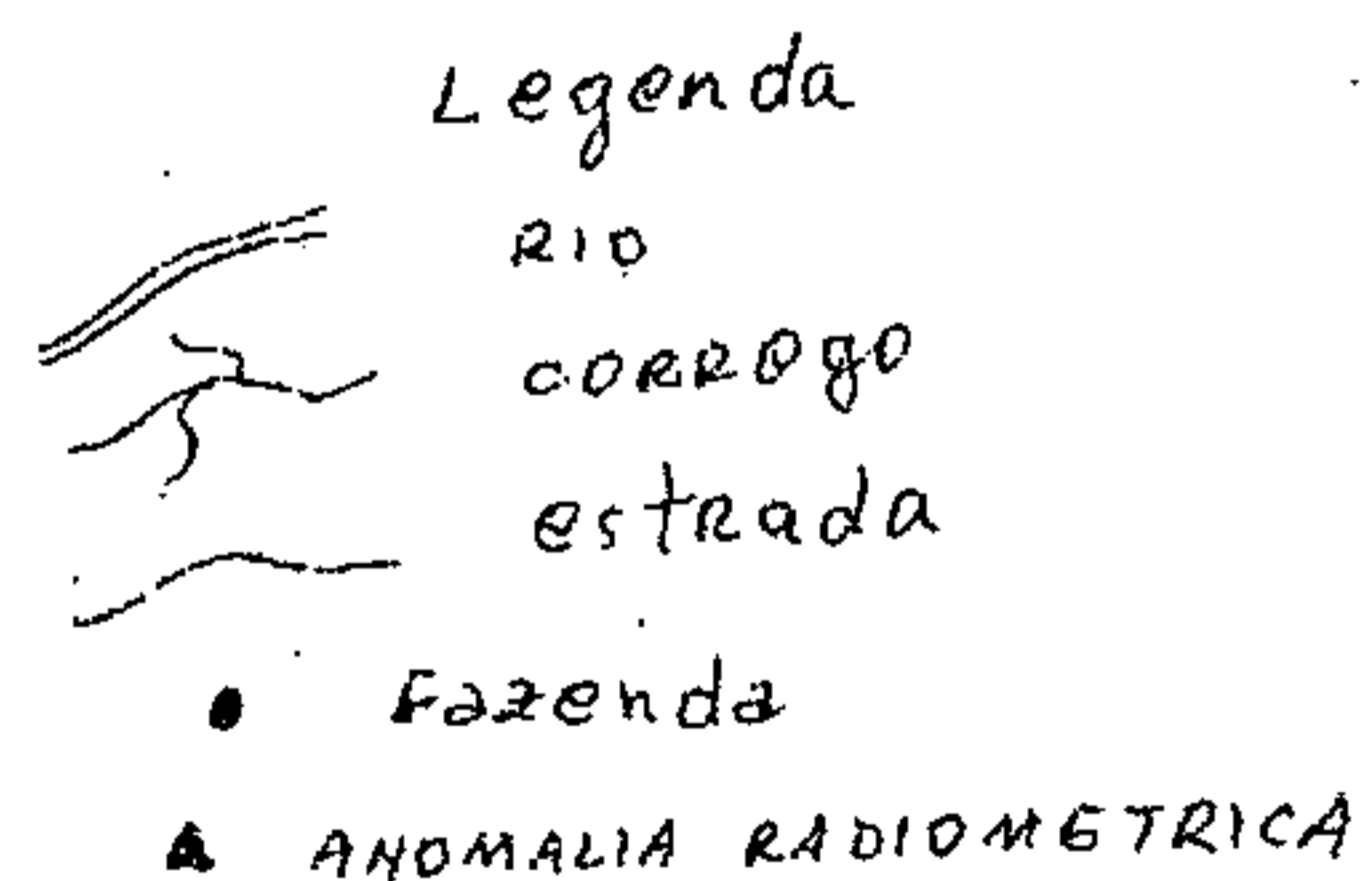 Legenda
RIO
CORREgO
estRada
Fazenda
ANOMALIA RADIOMETRICA